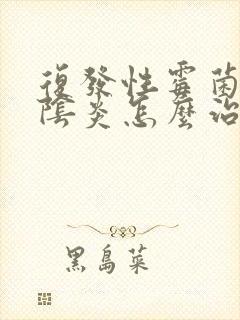 復發性霉菌
陰炎怎麼治
黑島菜